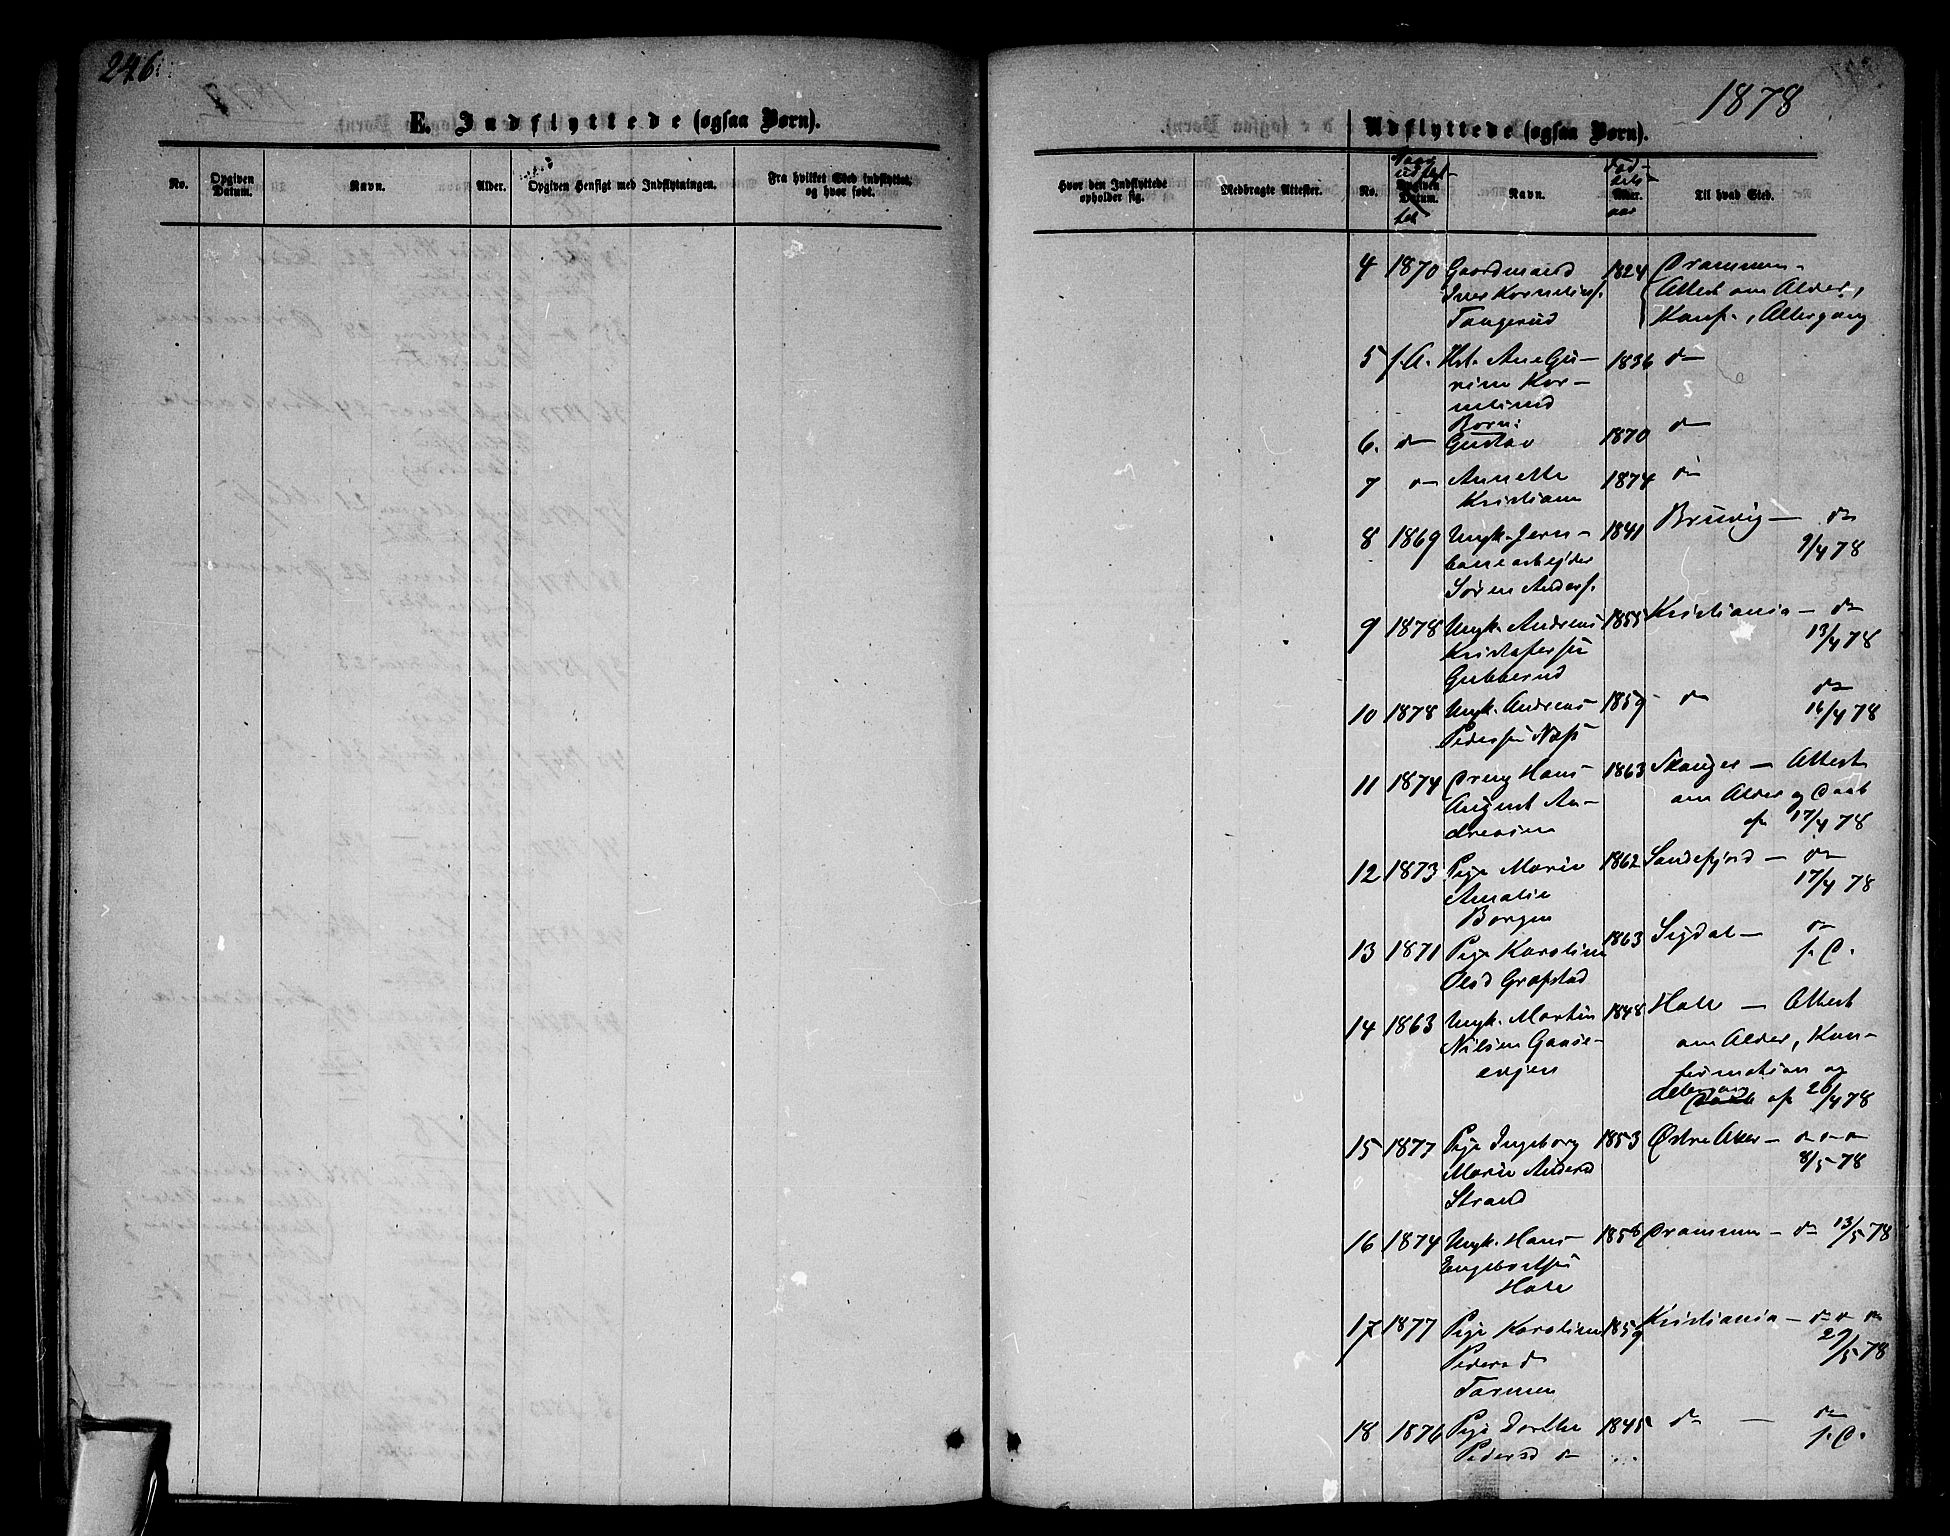 246.
E. Indflyttede (ogsaa Børn).
No.
Opgiven Datum.
Navn.
Alder.
Opgiven Hensigt med Indflytningen.
Fra hvilket Sted indflyttet, og hvor født.
1878
Udflyttede (ogsaa Børn).
Hvor den Indflyttede opholder sig.
Medbragte Attester.
No.
Opgiven Datum.
Navn.
Alder.
Til hvad Sted.
4 1870 Gaardmand 1824 Drammen -
Iver Kornelius. Attest om Alder,
Tangerud Konf., Altergang
5 s.A. Hst. Ane Gu- 1836 do
rine Kor-
nelsund
Børn:
6. do Gustav 1870 do
7 do Annette 1874 do
Kristiane
8 1869 Ungk. Jern- 1841 Bruvig - do
banearbejder 9/4 78
Søren Anders.
9 1878 Ungk. Andreas 1855 Kristiania - do
Kristofersen 13/4 78
Gubberud
10 1878 Ungk. Andreas 1859 - do do
Pedersen Næss 16/4 78
11 1874 Dreng Hans 1863 Skauger - Attest
August An- om Alder og Daab
dreasen af 17/4 78
12 1873 Pige Marie 1862 Sandefjord - do
Amalie 17/4 78
Borgen
13 1871 Pige Karoline 1863 Sigdal - do
Olsd Grafstad s. D.
14 1863 Ungk. Martin 1848 Hole - Attest
Nilsen Gaase- om Alder, Kon-
evjen firmation og
Altergang af 26/4 78
15 1877 Pige Ingeborg 1853 Østre Aker - do do do
Marie Andersd 8/5 78
Strand
16 1874 Ungk. Hans 1858 Drammen - do 13/5 78
Engebretsen
Hole
17 1877 Pige Karoline 1859 Kristiania - do do do
Pedersd 29/5 78
Tormen
18 1876 Pige Dorthe 1845 do - do
Pedersd do s. D.